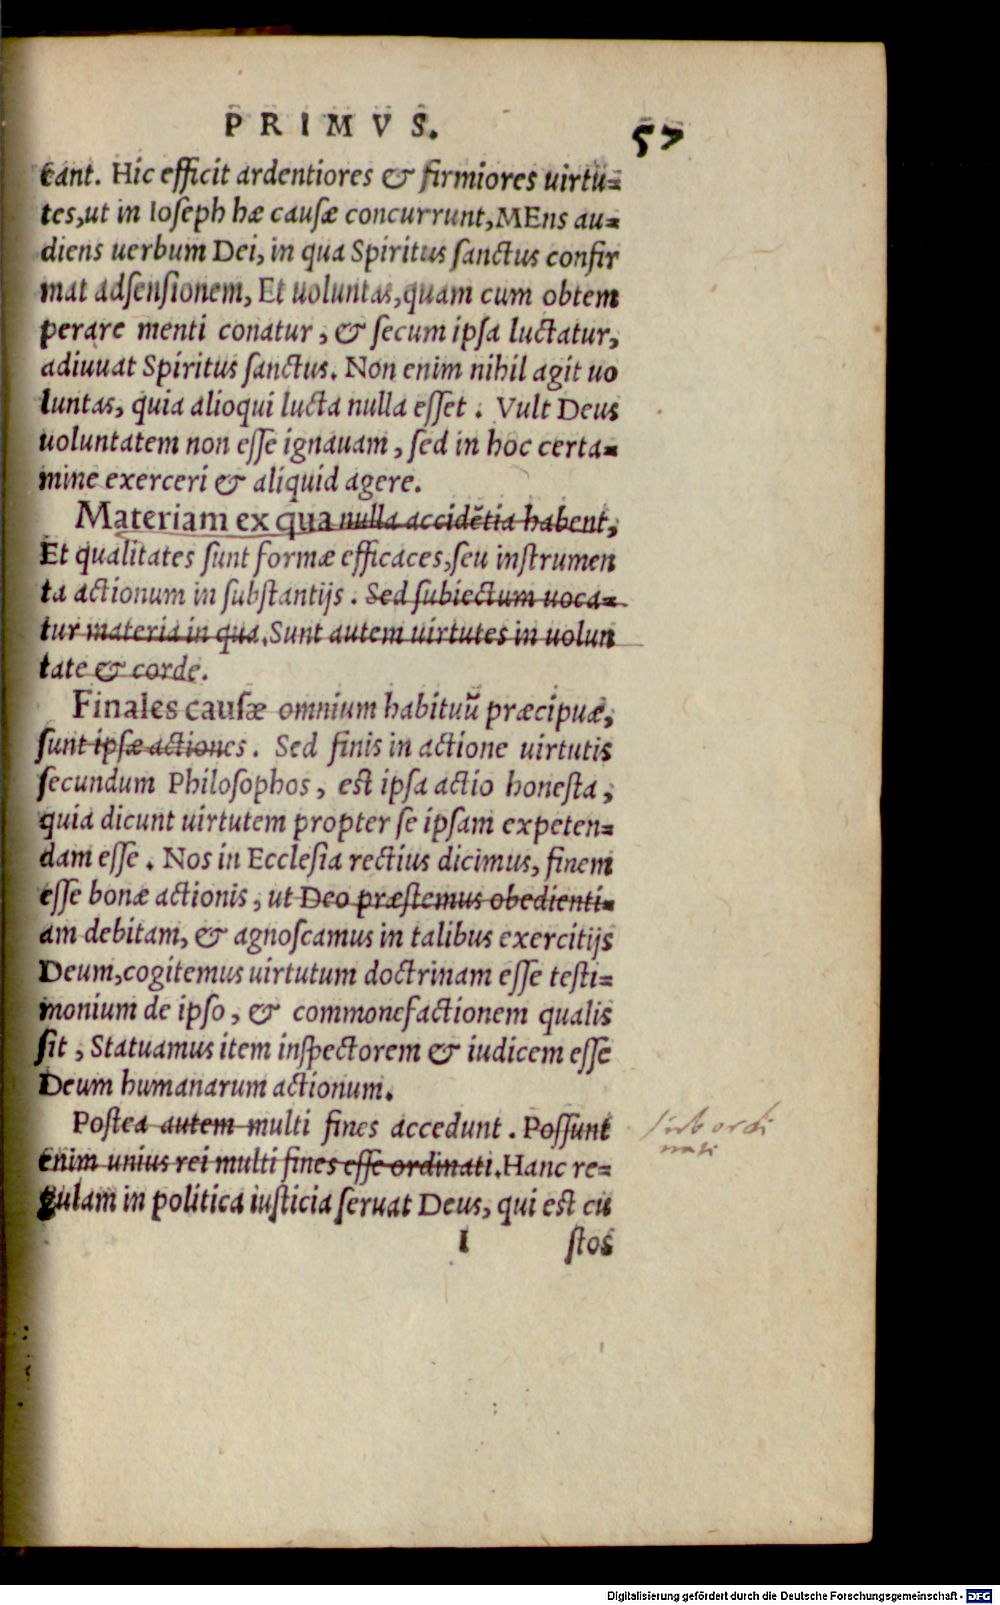 PRIMVS. 57
cant. Hic efficit ardentiores & firmiores uirtu=
tes, ut in Ioseph hæ causæ concurrunt, MEns au=
diens uerbum Dei, in qua Spiritus sanctus confir
mat adsensionem, Et uoluntas, quam cum obtem
perare menti conatur, & secum ipsa luctatur,
adiuuat Spiritus sanctus. Non enim nihil agit uo
luntas, quia alioqui lucta nulla esset. Vult Deus
uoluntatem non esse ignauam, sed in hoc certa=
mine exerceri & aliquid agere.
Materiam ex qua nulla accidẽtia habent,
Et qualitates sunt formæ efficaces, seu instrumen
ta actionum in substantijs. Sed subiectum uoca=
tur materia in qua. Sunt autem uirtutes in uolun
tate & corde.
Finales causæ omnium habituũ præcipuæ,
sunt ipsæ actiones. Sed finis in actione uirtutis
secundum Philosophos, est ipsa actio honesta,
quia dicunt uirtutem propter se ipsam expeten=
dam esse. Nos in Ecclesia rectius dicimus, finem
esse bonæ actionis, ut Deo præstemus obedienti=
am debitam, & agnoscamus in talibus exercitijs
Deum, cogitemus uirtutum doctrinam esse testi=
monium de ipso, & commonefactionem qualis
sit, Statuamus item inspectorem & iudicem esse
Deum humanarum actionum.
Postea autem multi fines accedunt. Possunt
enim unius rei multi fines esse ordinati. Hanc re=
gulam in politica iusticia seruat Deus, qui est cu
I stos
subordi
nati
Digitalisierung gefördert durch die Deutsche Forschungsgemeinschaft - DFG